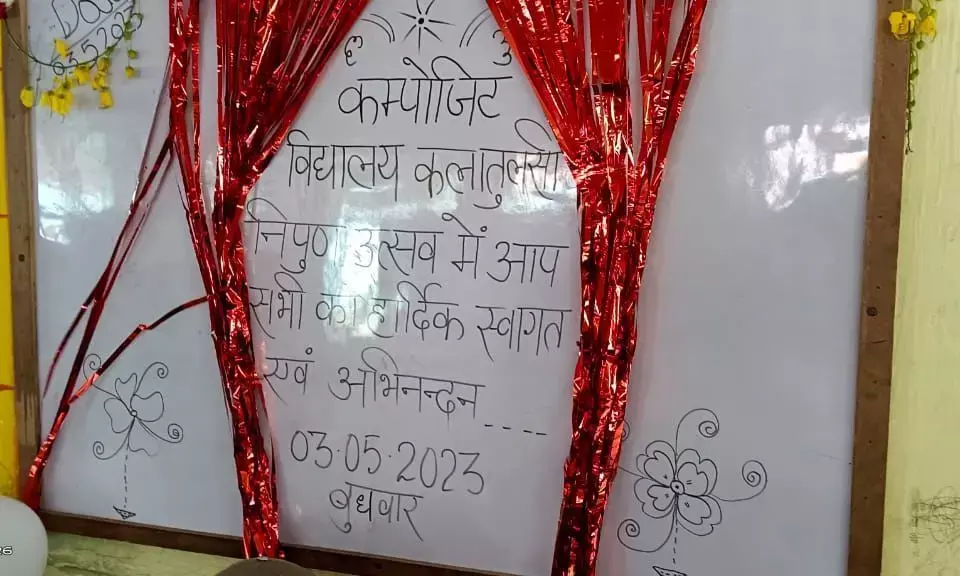 कम्पोजिट
विद्यालय कलातुलसी
निपुण उत्सव में आप
सभी का हार्दिक स्वागत
एवं अभिनन्दन ----
03.05.2023
बुधवार